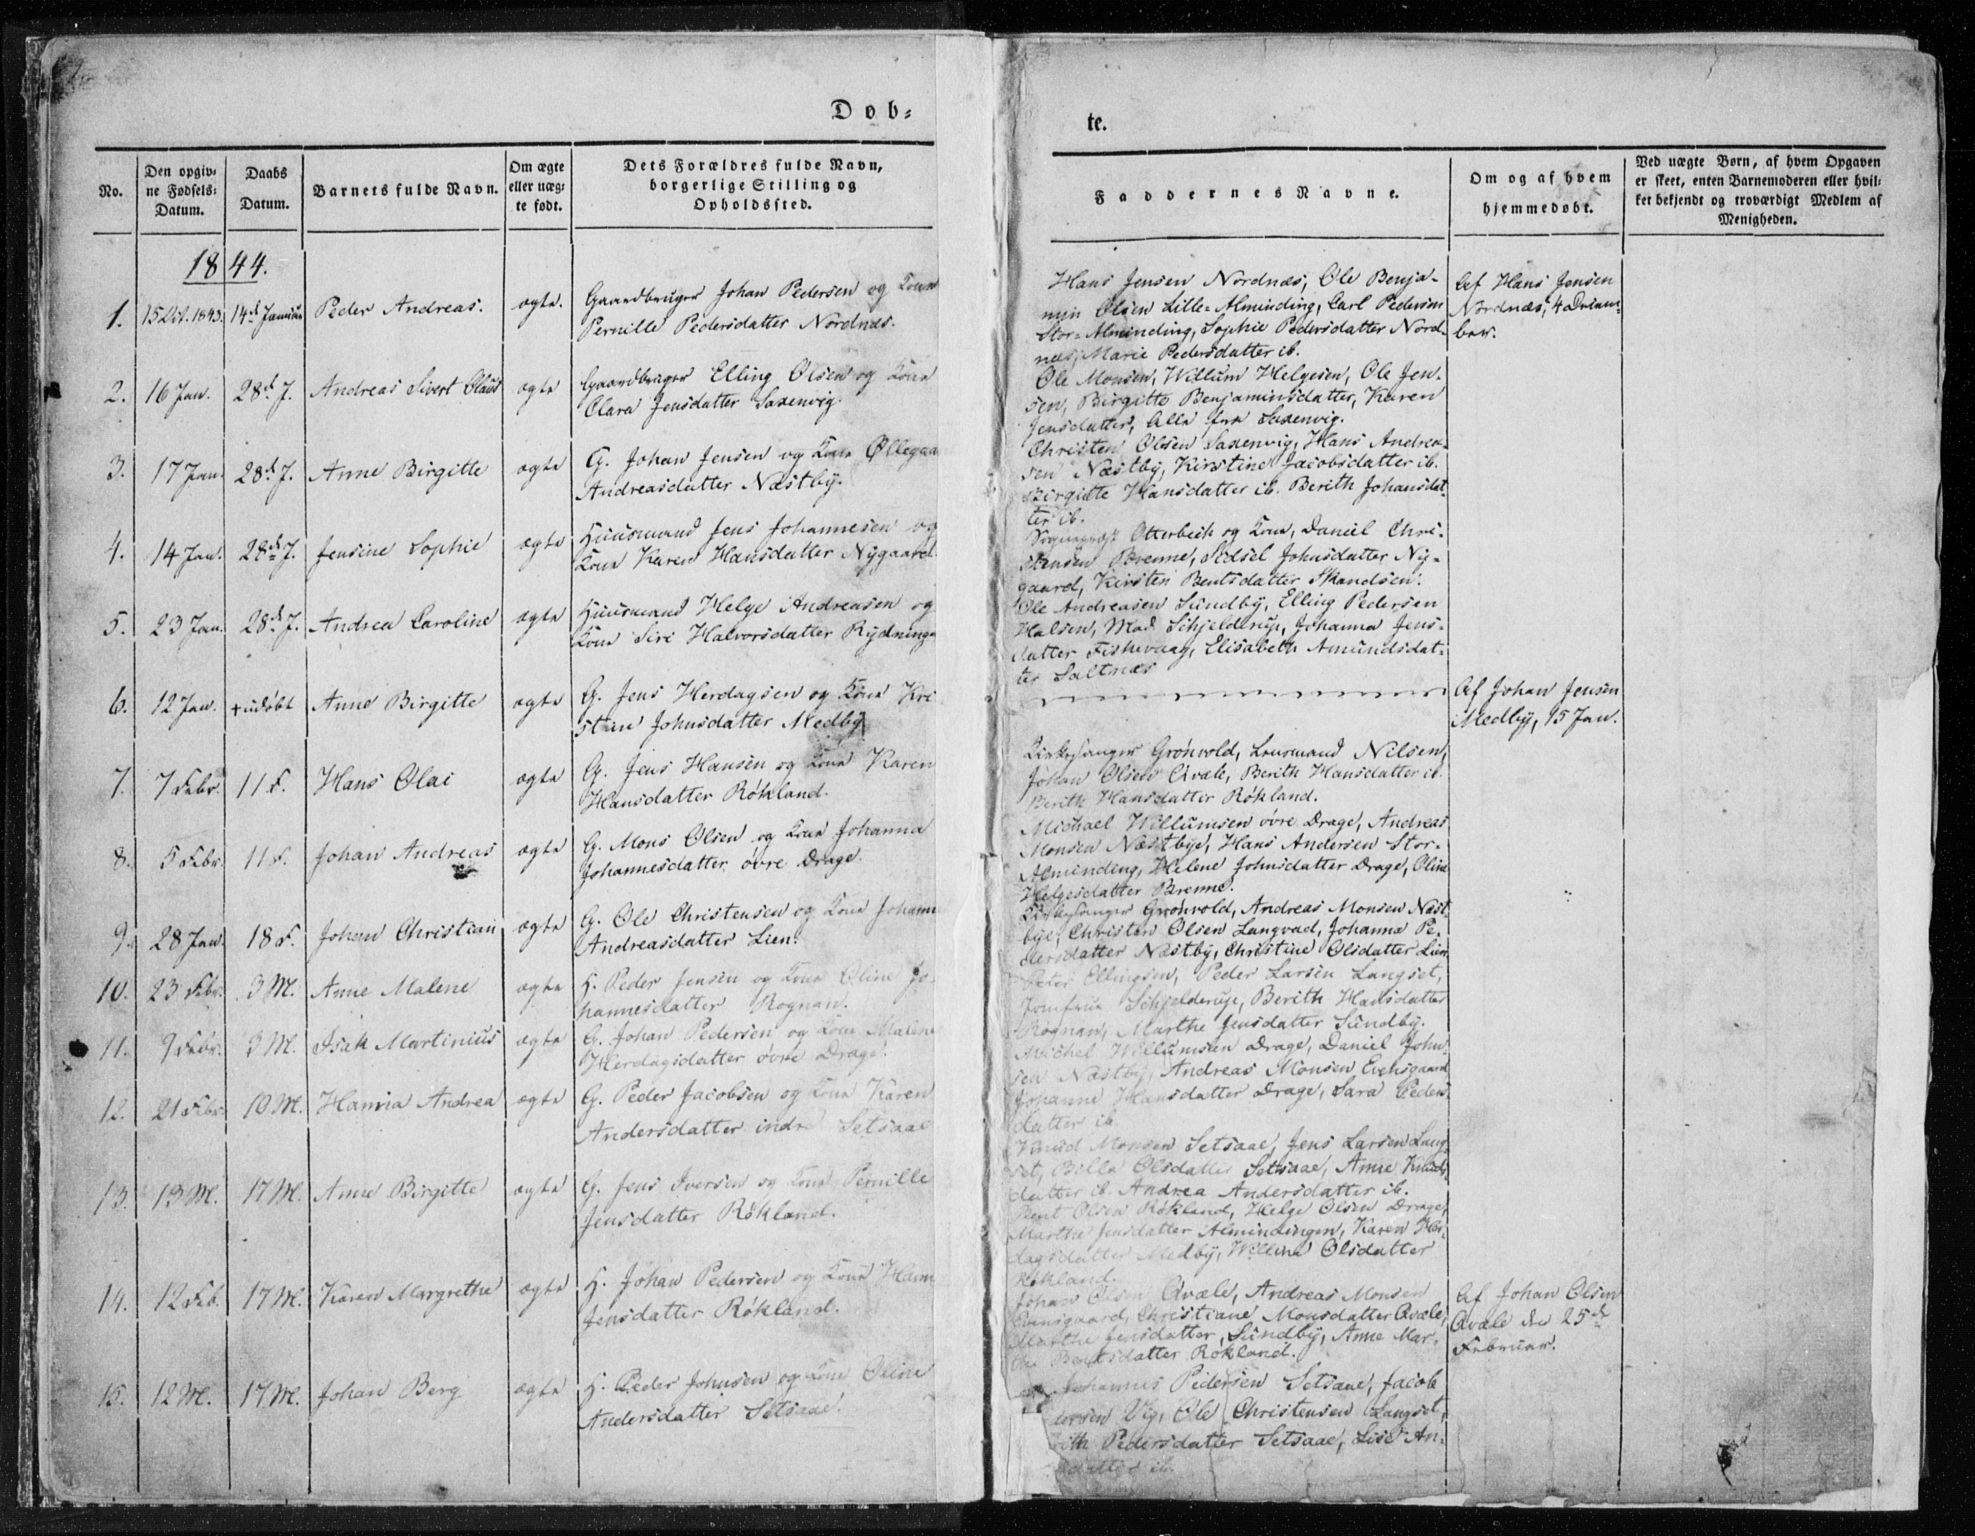 Døb-
te.
No.
Den opgiv-
ne Fødsels-
Datum.
Daabs
Datum.
Barnets fulde Navn.
Om ægte
eller uæg-
te født.
Dets Forældres fulde Navn,
borgerlige Stilling og
Opholdssted.
Faddernes Navne.
Om og af hvem
hjemmedøbt.
Ved uægte Børn, af hvem Opgaven
er skeet, enten Barnemoderen eller hvil-
ket bekjendt og troværdigt Medlem af
Menigheden.
1844.
1. 15 Oct. 1843. 14d Januar Peder Andreas. ægte. Gaardbruger Johan Pedersen og Kone
Pernille Pedersdatter Nordnæs.
Hans Jensen Nordnæs, Ole Benja-
min Olsen Lille-Alminding, Carl Pedersen
Stor-Alminding, Sophie Pedersdatter Nord-
næs, Marie Pedersdatter ib.
Af Hans Jensen
Nordnæs, 4 Decem-
ber.
2. 16 Jan. 28d J. Andreas Sivert Olaus ægte Gaardbruger Elling Olsen og Kone
Clara Jensdatter Saxenvig.
Ole Monsen, Willum Helgesen, Ole Jen-
sen, Birgitte Benjaminsdatter, Karen
Jensdatter, Alle fra Saxenvig.
3. 17 Jan. 28d J. Anne Birgitte ægte G. Johan Jensen og Kone Øllegaa
Andreasdatter Næstby.
Christen Olsen Saxenvig, Hans Andrea-
sen Næstby, Kirstine Jacobsdatter ib.
Birgitte Hansdatter ib. Berith Johansdat-
ter ib.
4. 14 Jan. 28d J. Jensine Sophie ægte Huusmand Jens Johannesen og
Kone Karen Hansdatter Nygaard.
Sognepræst Otterbech og Kone, Daniel Chri-
stensen Brenne, Sidsel Johnsdatter Ny-
gaard, Kirsten Bentsdatter
5. 23 Jan. 28d J. Andrea Caroline ægte Huusmand Helge Andreasen og
Kone Siri Halvorsdatter Rydninge
Ole Andreasen Sundby, Elling Pedersen
Halsen, Mad. Schjelderup, Johanna Jens-
datter Fiskevaag, Elisabeth Amundsdat-
ter Saltnæs
6. 12 Jan. + udøbt Anne Birgitte ægte G. Jens Herdagsen og Kone Kri
stine Johnsdatter Medby
Af Johan Jensen
Medby, 15 Jan.
7. 7 Febr. 11 F. Hans Olai ægte G. Jens Hansen og Kone Karen
Hansdatter Røkland.
Kirkesanger Grønvold, Lensmand Nilsen,
Johan Olsen Qvæle, Berith Hansdatter ib.
Berith Hansdatter Røkland.
8. 5 Febr. 11 F. Johan Andreas ægte G. Mons Olsen og Kone Johanna
Johannesdatter øvre Drage.
Michael Willumsen øvre Drage, Andreas
Monsen Næstbye, Hans Andersen Stor-
Alminding, Helene Johnsdatter Drage, Oline
Helgesdatter Brenne.
9. 28 Jan. 18 F. Johan Christian ægte G. Ole Christensen og Kone Johann
Andreasdatter Lien.
Kirkesanger Grønvold, Andreas Monsen Næst-
bye, Christen Olsen Langvad, Johanna Pe-
dersdatter Næstby, Christine Olsdatter Lien
10. 23 Febr. 3 M. Anne Malene ægte H. Peder Jensen og Kone Oline Jo-
hannesdatter Rognan.
Peter Ellingsen, Peder Larsen Langset,
Jomfrue Schjelderup, Berith Hansdatter
Rognan, Marthe Jensdatter Sundby.
11. 9 Febr. 3 M. Isak Martinius ægte G. Johan Pedersen og Kone Maline
Herdagsdatter øvre Drage.
Michel Willumsen Drage, Daniel John-
sen Næstby, Andreas Monsen Evensgaard
Johanne Hansdatter Drage, Sara Peders
datter ib.
12. 21 Febr. 10 M. Hanna Andrea ægte G. Peder Jacobsen og Kone Karen
Andersdatter indre Setsaae
Knud Monsen Setsaae, Jens Larsen Lang-
set, Bille Olsdatter Setsaae, Anne Knuds
datter ib. Andrea Andersdatter ib.
13. 13 M. 17 M. Anne Birgitte ægte G. Jens Iversen og Kone Pernille
Jensdatter Røkland.
Bent Olsen Røkland, Helge Olsen Drage,
Marthe Jensdatter Almindingen, Karen Her-
dagsdatter Medby, Willine Olsdatter
Røkland.
14. 12 Feb. 17 M. Karen Margrethe ægte H. Johan Pedersen og Kone Hann
Jensdatter Røkland.
Johan Olsen Qvæle, Andreas Monsen
Evensgaard, Christiane Monsdatter Qvæle,
Marthe Jensdatter Sundby, Anne Mar-
the Bentsdatter Røkland.
Af Johan Olsen
Qvæle den 25de
Februar.
15. 12 M. 17 M. Johan Berg ægte H. Peder Johnsen og Kone Oline
Andersdatter Setsaae.
Johannes Pedersen Setsaae, Jacob
dersen Vig, Ole Christensen Langset,
rith Pedersdatter Setsaae, Lise An-
datter ib.